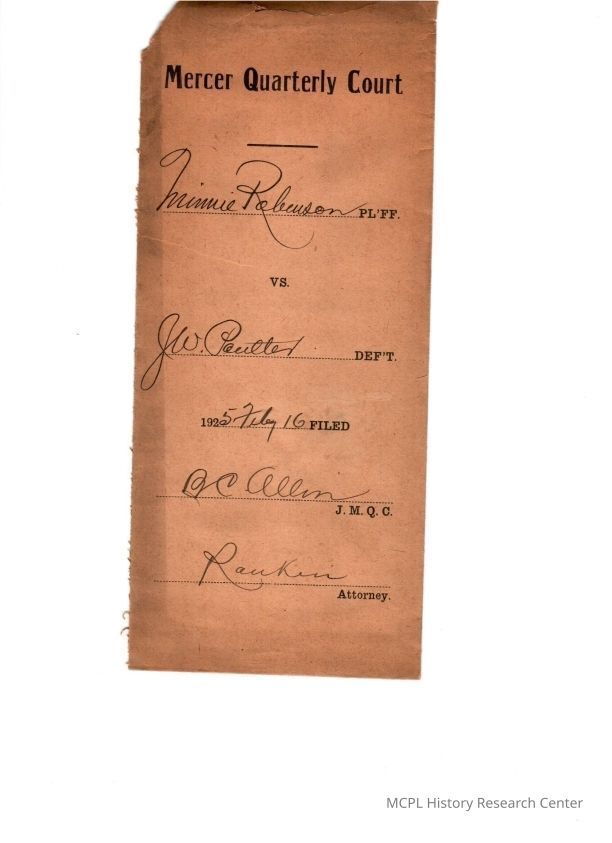 Mercer Quarterly Court
Minnie Robenson PL'FF.
VS.
J.W. Poulter DEF'T.
1925 Feby 16 FILED
B C Allin
J. M. Q. C.
Rankin
Attorney.
MCPL History Research Center